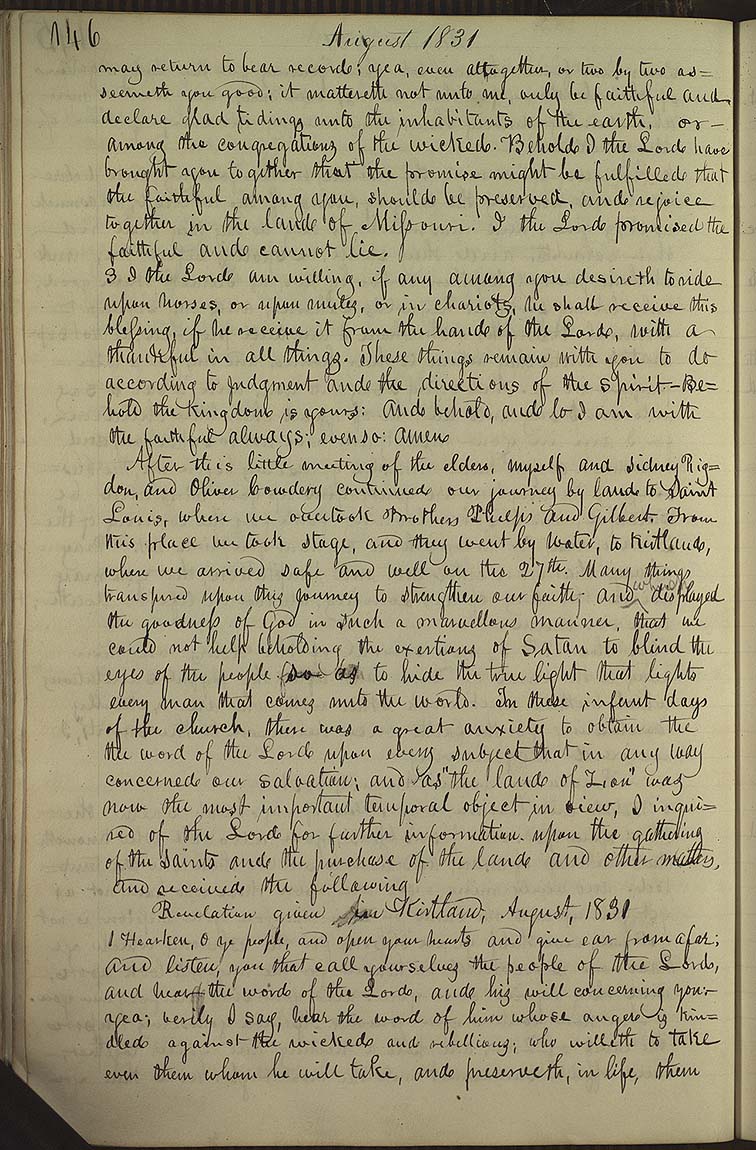 146 August 1831
may return to bear record; yea, even altogether, or two by two as=
seemeth you good; it mattereth not unto me, only be faithful and
declare glad tidings unto the inhabitants of the earth, or-
among the congregations of the wicked. Behold I the Lord have
brought you together that the promise might be fulfilled that
the faithful among you, should be preserved, and rejoice
together in the land of Missouri. I the Lord promised the
faithful and cannot lie.
3 I the Lord am willing, if any among you desireth to ride
upon horses, or upon mules, or in chariots, he shall receive this
blessing, if he receive it from the hand of the Lord, with a
thankful in all things. These things remain with you to do
according to judgment and the directions of the spirit-Be=
hold the kingdom is yours: And behold, and lo I am with
the faithful always; even so: amen
After this little meeting of the elders, myself and Sidney Rig=
don, and Oliver Cowdery continued our journey by land to Saint
Louis, where we overtook Brothers Phelps and Gilbert. From
this place we took stage, and they went by water, to Kirtland,
where we arrived safe and well on the 27th. Many things
transpired upon this journey to strengthen our faith, and which displayed
the goodness of God in such a marvellous manner, that we
could not help beholding the exertions of Satan to blind the
eyes of the people so as to hide the true light that lights
every man that comes unto the world. In these infant days
of the church, there was a great anxiety to obtain the
the word of the Lord upon every subject that in any way
concerned our salvation; and as "the land of Zion" was
now the most important temporal object in view, I inqui=
red of the Lord for further information upon the gathering
of the Saints and the purchase of the land and other matters,
and received the following
Revelation given in Kirtland, August, 1831
1 Hearken, O ye people, and open your hearts and give ear from afar;
and listen, you that call yourselves the people of the Lord,
and hear the word of the Lord, and his will concerning you:-
yea; verily I say, hear the word of him whose anger is kin=
dled against the wicked and rebellious; who willeth to take
even them whom he will take, and preserveth, in life, them